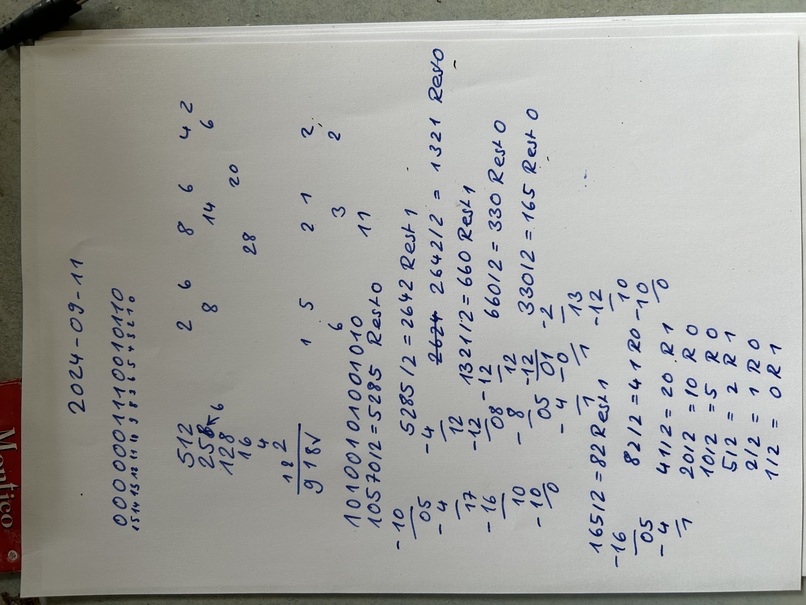 2024-09-11
0000001110010110
15 14 13 12 11 10 9 8 7 6 5 4 3 2 1 0
512 2 6 8 6 4 2
256 8 14 6
128 20
16 28
4
2
1 2
918✓ 1 5 2 1 2
6 3 2
11
10100101001010
10570/2=5285 Rest 0
-10
05
-4
17
-16
10
-10
0
5285/2=2642 Rest 1
-4
12
-12
08
-8
05
-4
1
2624 2642/2 = 1321 Rest 0
1321/2=660 Rest 1
-12
12
-12
01
-0
1
660/2=330 Rest 0
330/2=165 Rest 0
-2
13
-12
10
-10
0
165/2=82 Rest 1
-16
05
-4
1
82/2=41 R0
41/2= 20 R 1
20/2 =10 R 0
10/2 =5 R 0
5/2 = 2 R 1
2/2 = 1 R 0
1/2 = 0 R 1